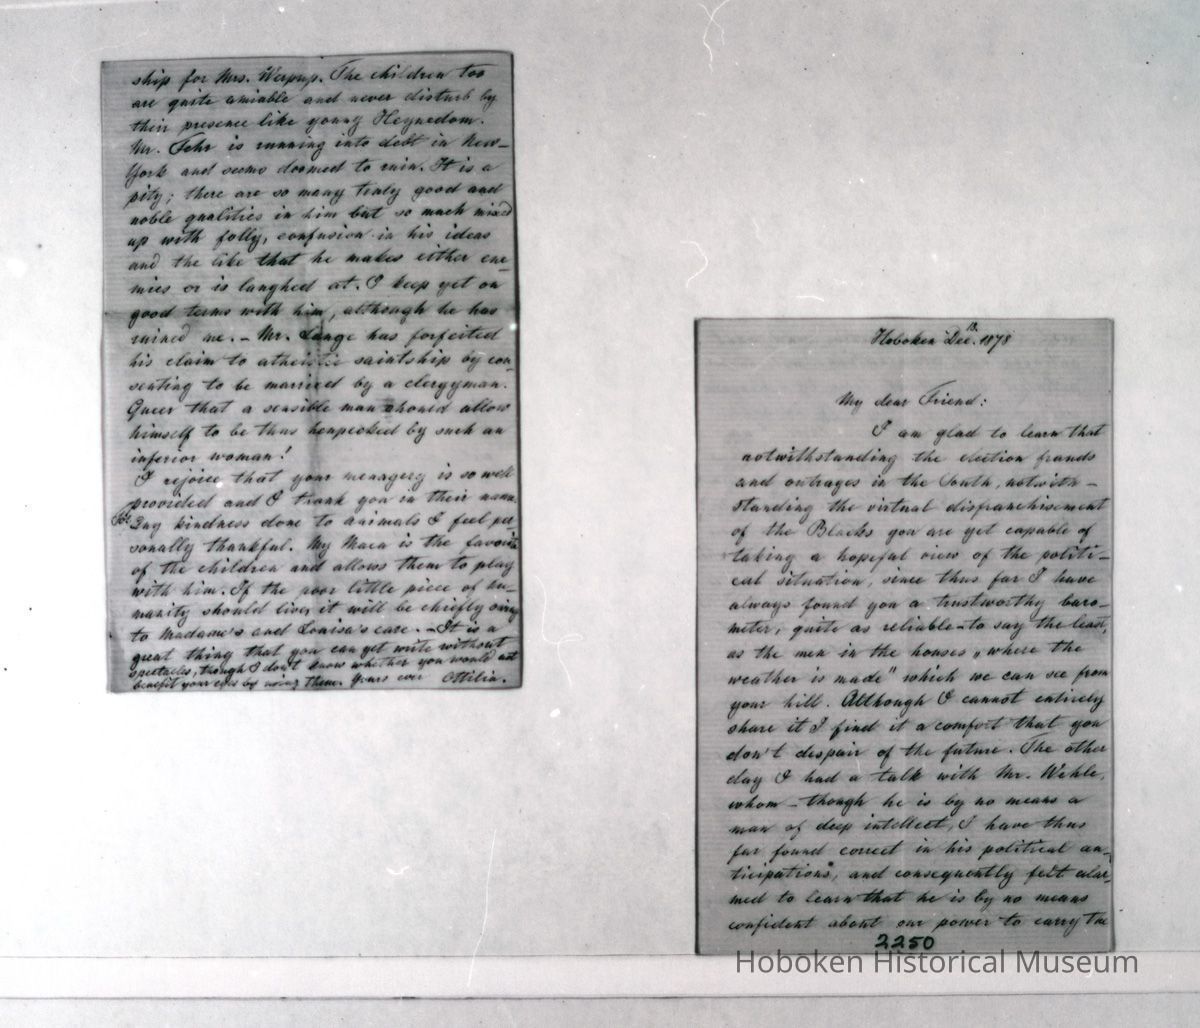 ship for Mrs. Werpup. The children too
are quite amiable and never disturb by
their presence like young Heynedom.
Mr. Fehr is running into debt in New-
York and seems doomed to ruin. It is a
pity; there are so many truly good and
noble qualities in him but so much mixed
up with folly, confusion in his ideas
and the like that he makes either ene-
mies or is laughed at. I keep yet on
good terms with him, although he has
ruined me. – Mr. Lange has forfeited
his claim to atheistic saintship by con-
senting to be married by a clergyman.
Queer that a sensible man should allow
himself to be thus henpecked by such an
inferior woman!
I rejoice that your menagery is so well
provided and I thank you in their name.
For any kindness done to animals I feel per-
sonally thankful. My Maca is the favorite
of the children and allows them to play
with him. If the poor little piece of hu-
manity should live, it will be chiefly owing
to Madame's and Louisa's care. – It is a
great thing that you can yet write without
spectacles, though I don't know whether you would not
benefit your eyes by using them. Yours ever Ottilia.
Hoboken Dec. 13. 1878
My dear Friend:
I am glad to learn that
notwithstanding the election frauds
and outrages in the South, notwith-
standing the virtual disfranchisement
of the Blacks you are yet capable of
taking a hopeful view of the politi-
cal situation, since thus far I have
always found you a trustworthy baro-
meter, quite as reliable – to say the least,
as the men in the houses „where the
weather is made" which we can see from
your hill. Although I cannot entirely
share it I find it a comfort that you
don't despair of the future. The other
day I had a talk with Mr. Wehle,
whom – though he is by no means a
man of deep intellect, I have thus
far found correct in his political an-
ticipations, and consequently felt alar-
med to learn that he is by no means
confident about our power to carry the
2250
Hoboken Historical Museum